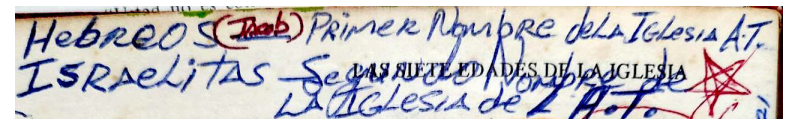 HebREOS (Jacob) PRimeR Nombre de LA IGLesia A.T.
ISRAeLiTAS Segundo Nombre de
LAS SIETE EDADES DE LA IGLESIA
LA IGLesia de L A.T.